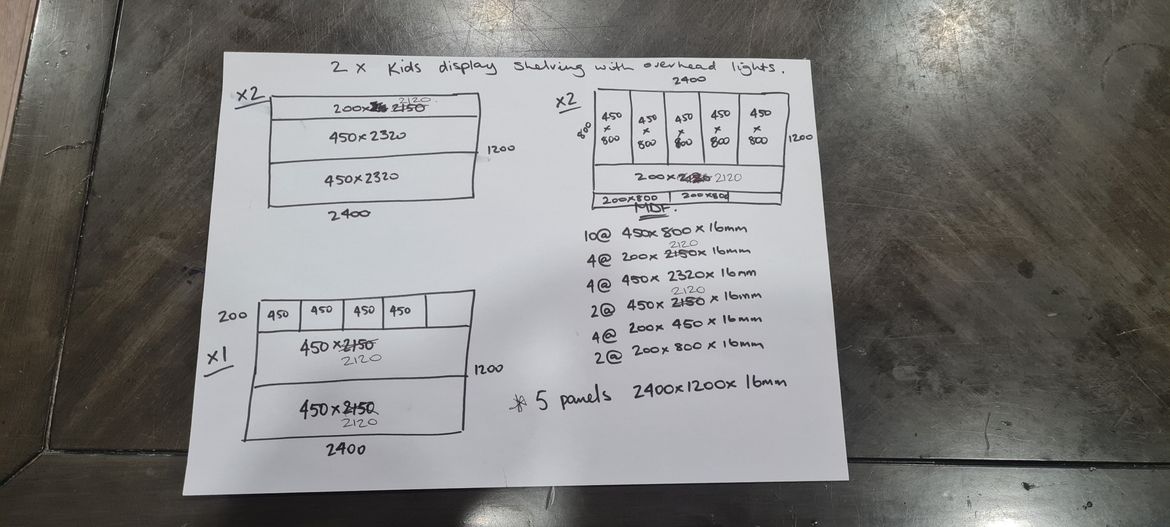 2 x Kids display shelving with overhead lights.
x2
200x 2150 2120
450x2320
450x2320
1200
2400
x2
2400
800
450 x 800
450 x 800
450 x 800
450 x 800
450 x 800
1200
200x 2120
200x800 200x800
MDF.
10@ 450x800x16mm
4@ 200x 2150 2120 x 16mm
4@ 450x 2320x 16mm
2@ 450x 2150 2120 x 16mm
4@ 200x 450 x 16mm
2@ 200x 800 x 16mm
* 5 panels 2400x1200x 16mm
x1
200
450 450 450 450
450x2150
2120
450x2150
2120
1200
2400